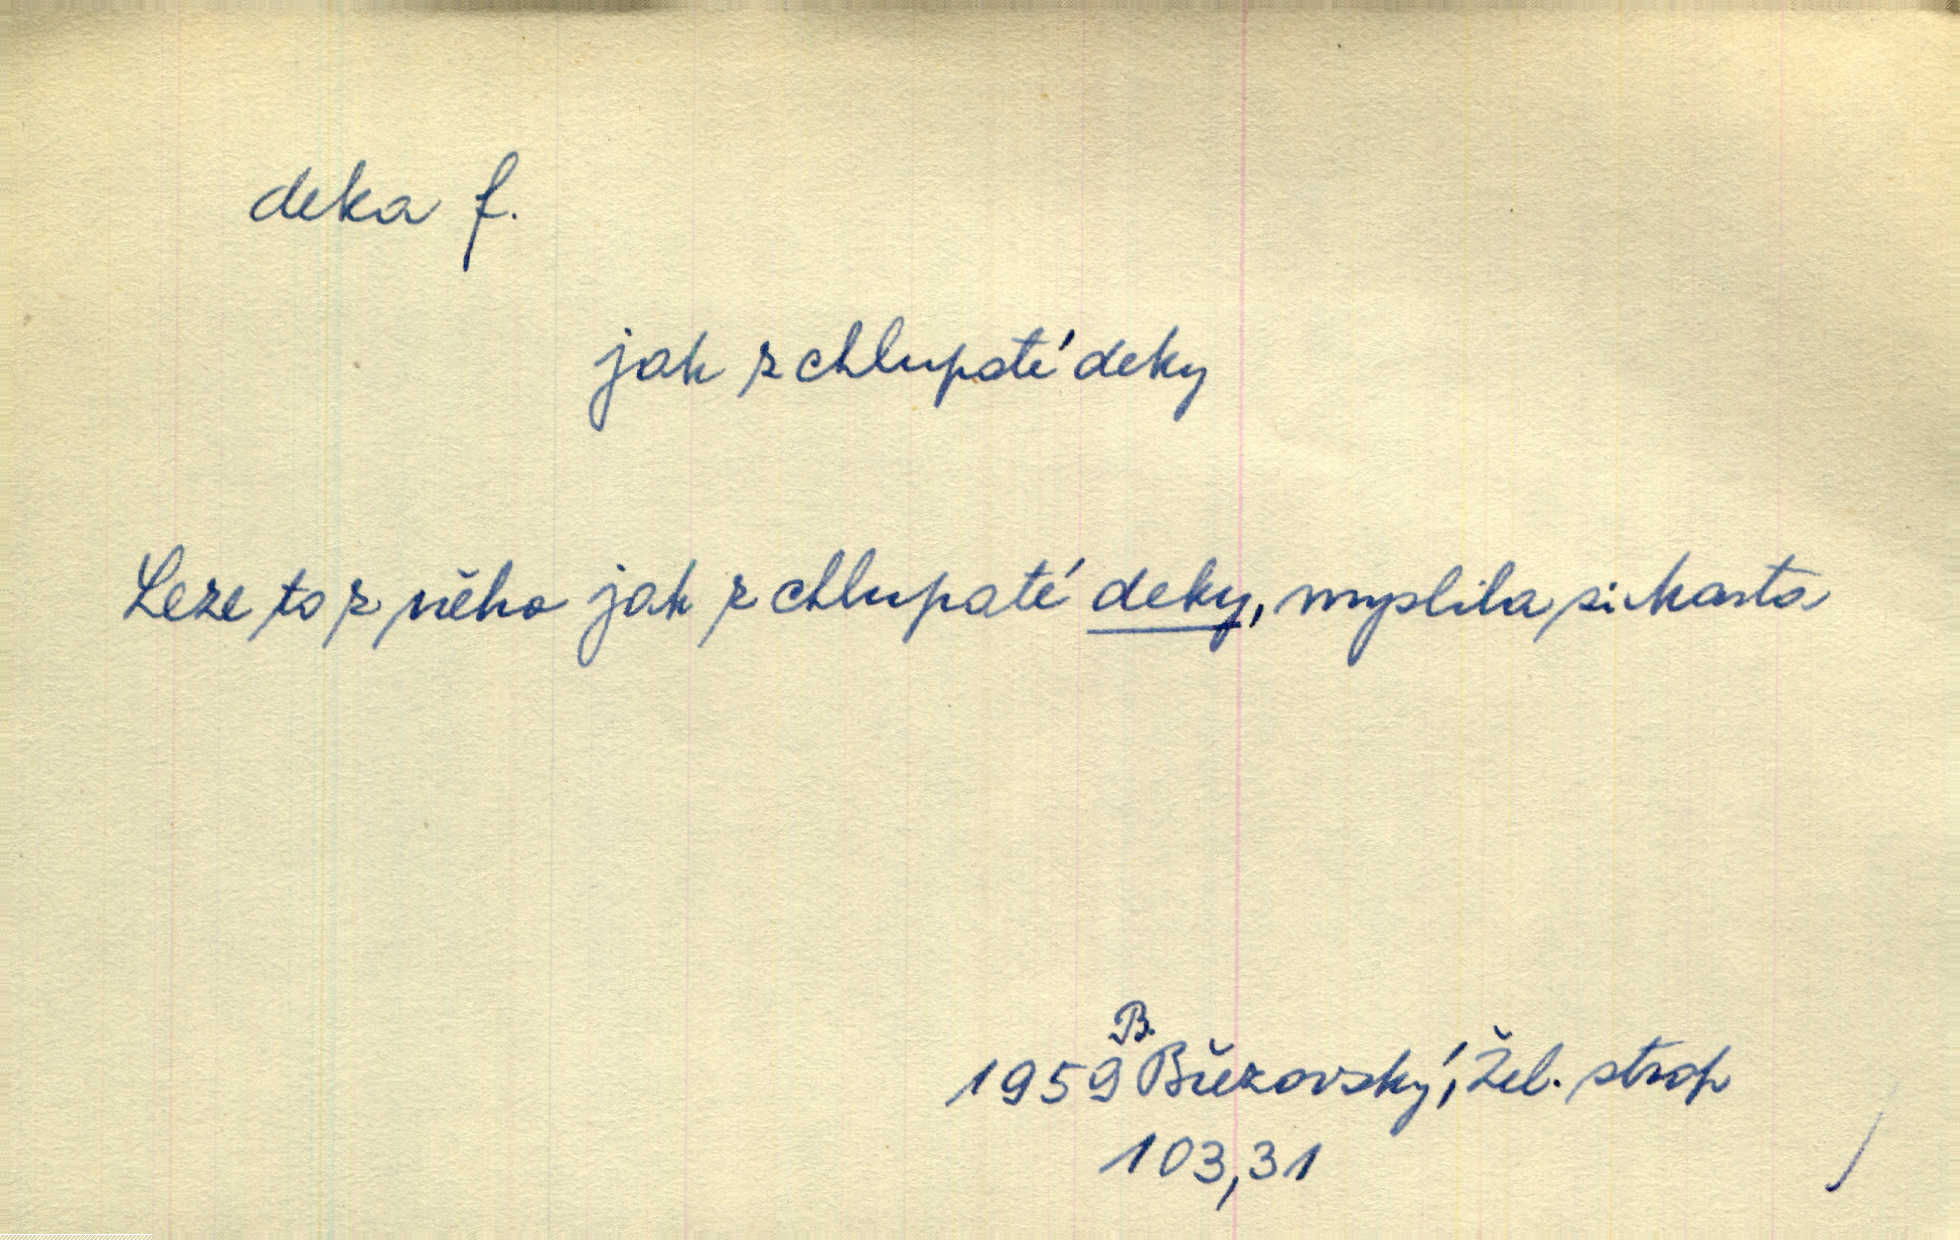 deka f.
jak z chlupaté deky
Leze to z něho jak z chlupaté deky, myslila si
B.
1959 Březovský, Žel. strop
103,31